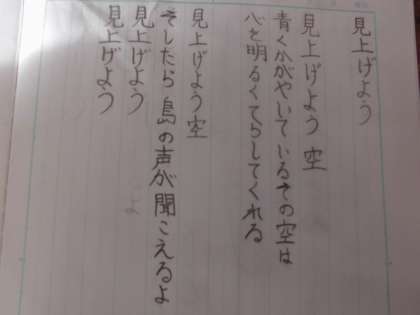 見上げよう
見上げよう 空
青くかがやいているその空は
心を明るくてらしてくれる
見上げよう空
そしたら島の声が聞こえるよ
見上げよう
見上げよう